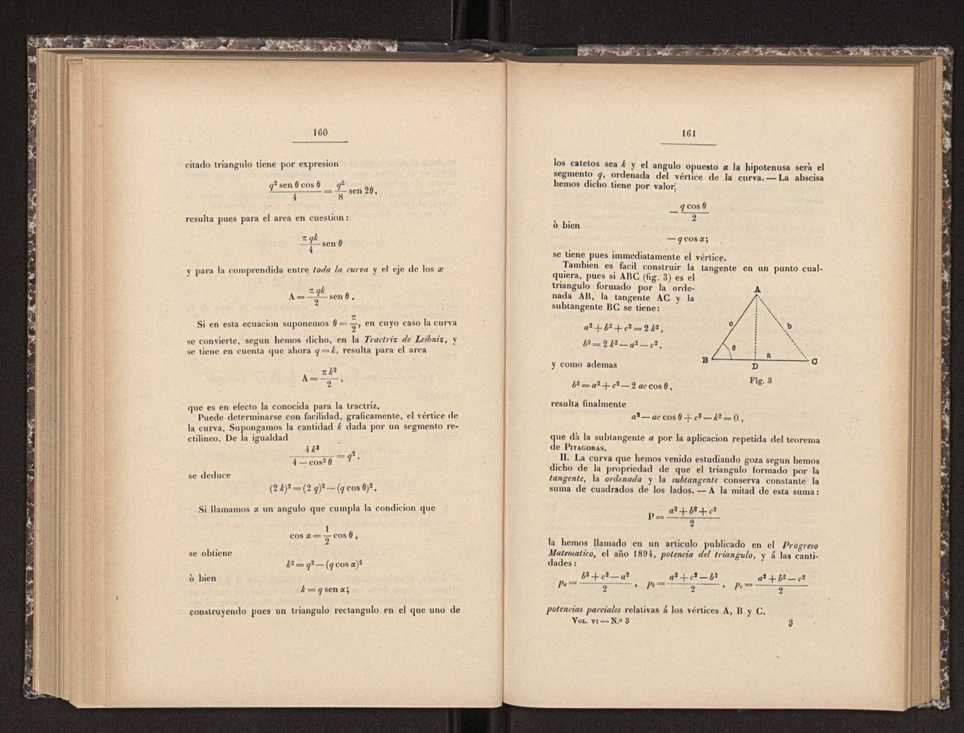 160
citado triangulo tiene por expresion
q² sen θ cos θ / 4 = q² / 8 sen 2θ,
resulta pues para el area en cuestion:
π qk / 4 sen θ
y para la comprendida entre toda la curva y el eje de los x
A = π qk / 2 sen θ.
Si en esta ecuacion suponemos θ = π / 2, en cuyo caso la curva
se convierte, segun hemos dicho, en la Tractriz de Leibniz, y
se tiene en cuenta que ahora q = k, resulta para el area
A = π k² / 2,
que es en efecto la conocida para la tractriz.
Puede determinarse con facilidad, graficamente, el vértice de
la curva. Supongamos la cantidad k dada por un segmento re-
ctilineo. De la igualdad
4 k² / 4 — cos² θ = q²,
se deduce
(2 k)² = (2 q)² — (q cos θ)².
Si llamamos α un angulo que cumpla la condicion que
cos α = 1 / 2 cos θ,
se obtiene
k² = q² — (q cos α)²
ò bien
k = q sen α;
construyendo pues un triangulo rectangulo en el que uno de
161
los catetos sea k y el angulo opuesto α la hipotenusa serà el
segmento q, ordenada del vértice de la curva. — La abscisa
hemos dicho tiene por valor
— q cos θ / 2
ò bien
— q cos α;
se tiene pues immediatamente el vértice.
Tambien es facil construir la tangente en un punto cual-
quiera, pues si ABC (fig. 3) es el
triangulo formado por la orde-
nada AB, la tangente AC y la
subtangente BC se tiene:
a² + b² + c² = 2 k²,
b² = 2 k² — a² — c².
y como ademas
b² = a² + c² — 2 ac cos θ,
A
c b
θ a
B D C
Fig. 3
resulta finalmente
a² — ac cos θ + c² — k² = 0,
que dà la subtangente a por la aplicacion repetida del teorema
de PITAGORAS.
II. La curva que hemos venido estudiando goza segun hemos
dicho de la propriedad de que el triangulo formado por la
tangente, la ordenada y la subtangente conserva constante la
suma de cuadrados de los lados. — A la mitad de esta suma:
P = a² + b² + c² / 2
la hemos llamado en un articulo publicado en el Progreso
Matematico, el año 1894, potencia del triangulo, y á las canti-
dades:
pₐ = b² + c² — a² / 2, p_b = a² + c² — b² / 2, p_c = a² + b² — c² / 2
potencias parciales relativas á los vértices A, B y C.
VOL. VI — N.º 3 3